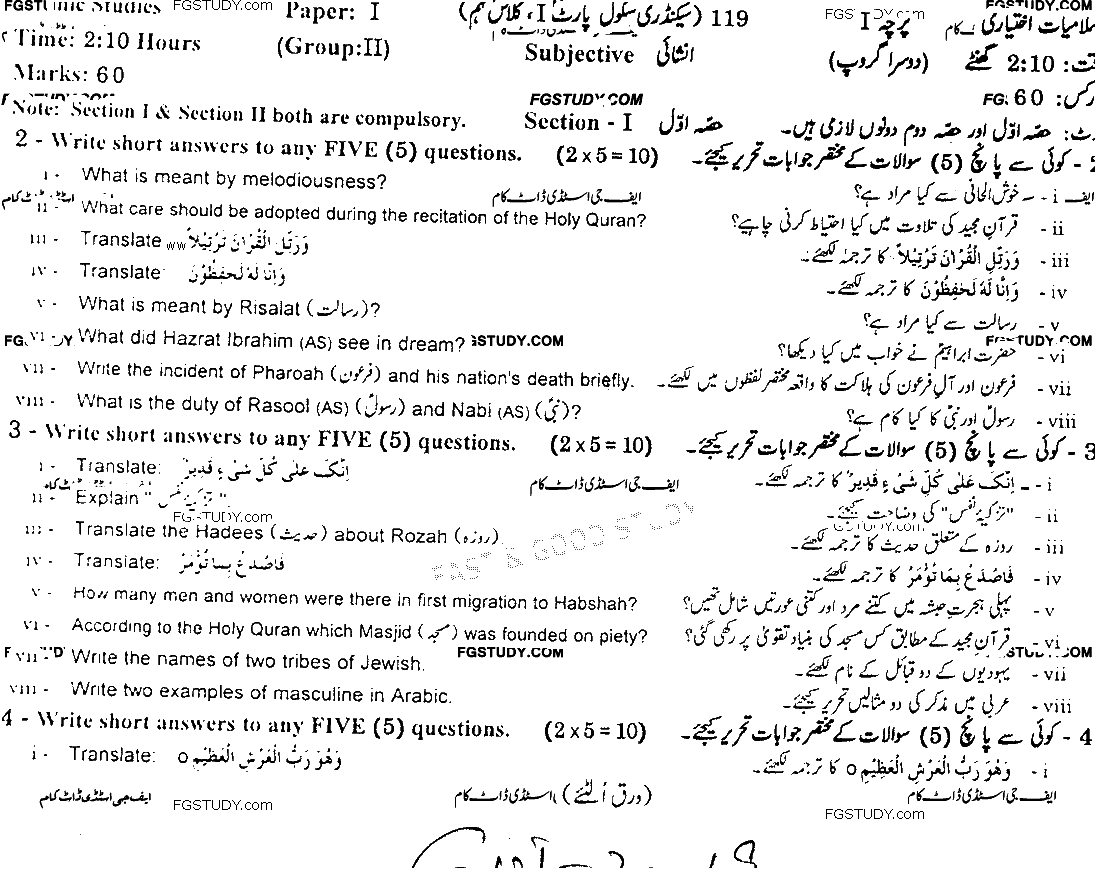 Islamic Studies FGSTUDY.com Paper: I 119 (سیکنڈری سکول پارٹ I، کلاس نہم) پرچہ I اسلامیات اختیاری
Time: 2:10 Hours (Group:II) Subjective انشائی (دوسرا گروپ) وقت: 2:10 گھنٹے
Marks: 60 مارکس: 60
FGSTUDY.COM
Note: Section I & Section II both are compulsory. Section - I حصّہ اوّل نوٹ: حصّہ اوّل اور حصّہ دوم دونوں لازمی ہیں۔
2 - Write short answers to any FIVE (5) questions. (2 x 5 = 10) 2 - کوئی سے پانچ (5) سوالات کے مختصر جوابات تحریر کیجئے۔
i - What is meant by melodiousness? i - خوش الحانی سے کیا مراد ہے؟
ایف جی اسٹڈی ڈاٹ کام
ii - What care should be adopted during the recitation of the Holy Quran? ii - قرآنِ مجید کی تلاوت میں کیا احتیاط کرنی چاہیے؟
iii - Translate وَرَتِّلِ الْقُرْاٰنَ تَرْتِيْلاً iii - وَرَتِّلِ الْقُرْاٰنَ تَرْتِيْلاً کا ترجمہ لکھئے۔
iv - Translate: وَاِنَّا لَهٗ لَحٰفِظُوْنَ iv - وَاِنَّا لَهٗ لَحٰفِظُوْنَ کا ترجمہ لکھئے۔
v - What is meant by Risalat (رسالت)? v - رسالت سے کیا مراد ہے؟
vi - What did Hazrat Ibrahim (AS) see in dream? vi - حضرت ابراہیمؑ نے خواب میں کیا دیکھا؟
vii - Write the incident of Pharoah (فرعون) and his nation's death briefly. vii - فرعون اور آلِ فرعون کی ہلاکت کا واقعہ مختصر لفظوں میں لکھئے۔
viii - What is the duty of Rasool (AS) (رسولؑ) and Nabi (AS) (نبیؑ)? viii - رسولؑ اور نبیؑ کا کیا کام ہے؟
3 - Write short answers to any FIVE (5) questions. (2 x 5 = 10) 3 - کوئی سے پانچ (5) سوالات کے مختصر جوابات تحریر کیجئے۔
i - Translate: اِنَّکَ عَلٰی کُلِّ شَیْءٍ قَدِيْرٌ i - اِنَّکَ عَلٰی کُلِّ شَیْءٍ قَدِيْرٌ کا ترجمہ لکھئے۔
ایف جی اسٹڈی ڈاٹ کام
ii - Explain " تزکیۂ نفس " ii - "تزکیۂ نفس" کی وضاحت کیجئے۔
FGSTUDY.com
FAST & GOOD STUDY
iii - Translate the Hadees (حدیث) about Rozah (روزہ). iii - روزہ کے متعلق حدیث کا ترجمہ لکھئے۔
iv - Translate: فَاصْدَعْ بِمَا تُؤْمَرُ iv - فَاصْدَعْ بِمَا تُؤْمَرُ کا ترجمہ لکھئے۔
v - How many men and women were there in first migration to Habshah? v - پہلی ہجرتِ حبشہ میں کتنے مرد اور کتنی عورتیں شامل تھیں؟
vi - According to the Holy Quran which Masjid (مسجد) was founded on piety? vi - قرآنِ مجید کے مطابق کس مسجد کی بنیاد تقویٰ پر رکھی گئی؟
vii - Write the names of two tribes of Jewish. FGSTUDY.COM vii - یہودیوں کے دو قبائل کے نام لکھئے۔
viii - Write two examples of masculine in Arabic. viii - عربی میں مذکر کی دو مثالیں تحریر کیجئے۔
4 - Write short answers to any FIVE (5) questions. (2 x 5 = 10) 4 - کوئی سے پانچ (5) سوالات کے مختصر جوابات تحریر کیجئے۔
i - Translate: وَهُوَ رَبُّ الْعَرْشِ الْعَظِيْمِ o i - وَهُوَ رَبُّ الْعَرْشِ الْعَظِيْمِ o کا ترجمہ لکھئے۔
ایف جی اسٹڈی ڈاٹ کام FGSTUDY.com (ورق اُلٹئے) ایف جی اسٹڈی ڈاٹ کام
FGSTUDY.com